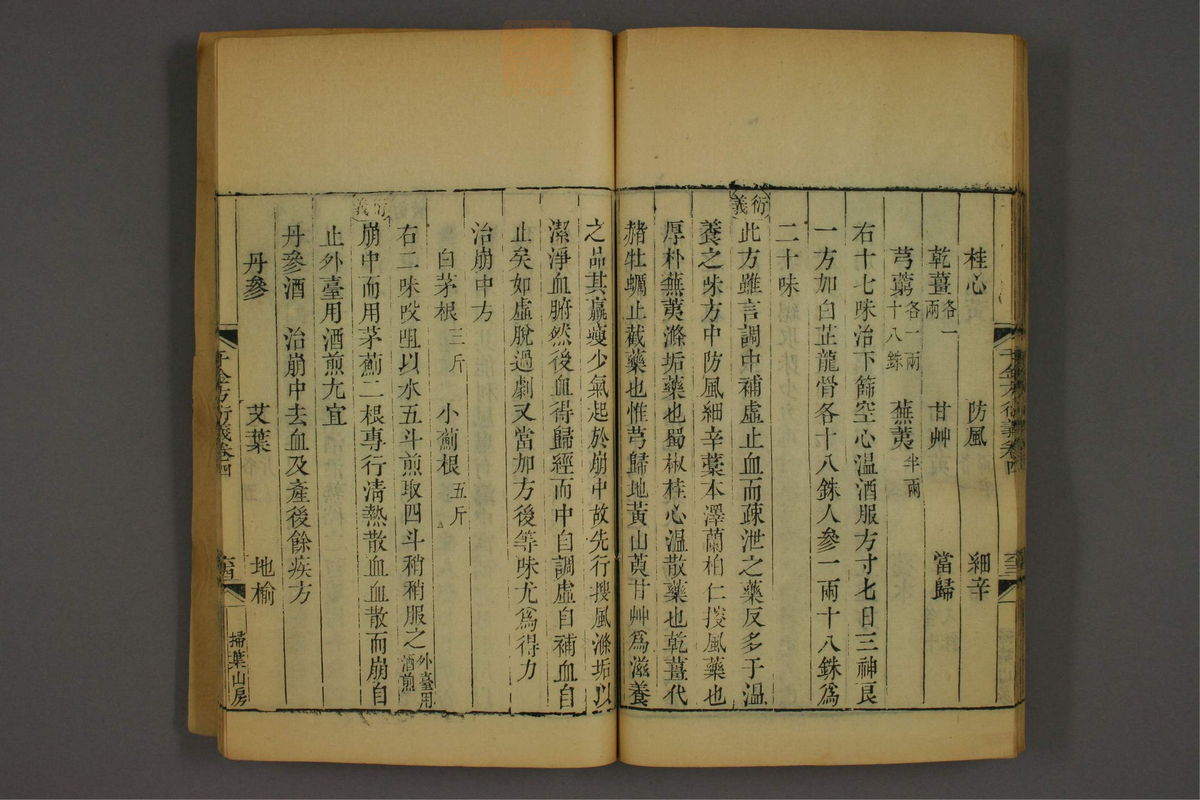 桂心　防風　細辛
乾薑各一兩　甘艸　當歸
芎藭各一兩十八銖　蕪荑半兩
右十七味治下篩空心温酒服方寸匕日三神良
一方加白芷龍骨各十八銖人參一兩十八銖爲
二十味
衍義
此方雖言調中補虛止血而疎泄之藥反多于温
養之味方中防風細辛藁本澤蘭柏仁搜風藥也
厚朴蕪荑滌垢藥也蜀椒桂心温散藥也乾薑代
赭牡蠣止截藥也惟芎歸地黃山萸甘艸爲滋養
之品其羸瘦少氣起於崩中故先行搜風滌垢以
潔淨血腑然後血得歸經而中自調虛自補血自
止矣如虛脫過劇又當加方後等味尤爲得力
治崩中方
白茅根三斤　小薊根五斤
右二味㕮咀以水五斗煎取四斗稍稍服之外臺用酒煎
衍義
崩中而用茅薊二根專行淸熱散血血散而崩自
止外臺用酒煎尤宜
丹參酒　治崩中去血及產後餘疾方
丹參　艾葉　地榆
千金方衍義卷四
掃葉山房